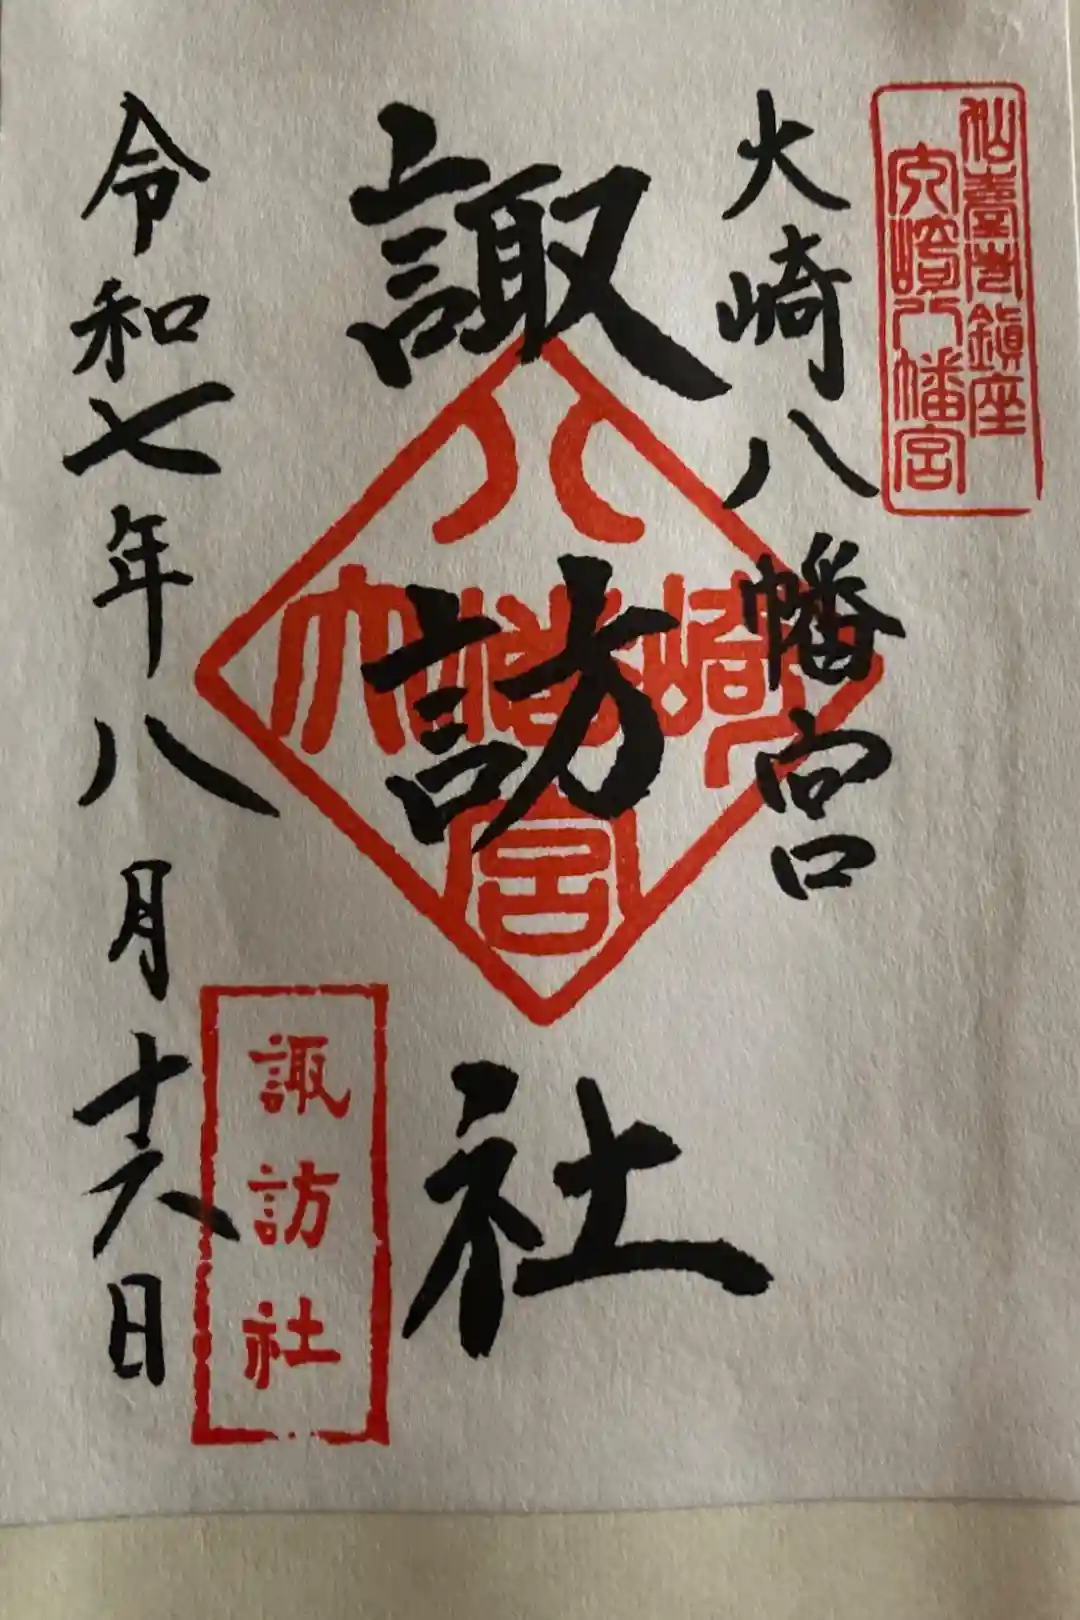 仙臺市鎮座
大崎八幡宮
大崎八幡宮
諏訪社
諏訪社
令和七年八月十六日